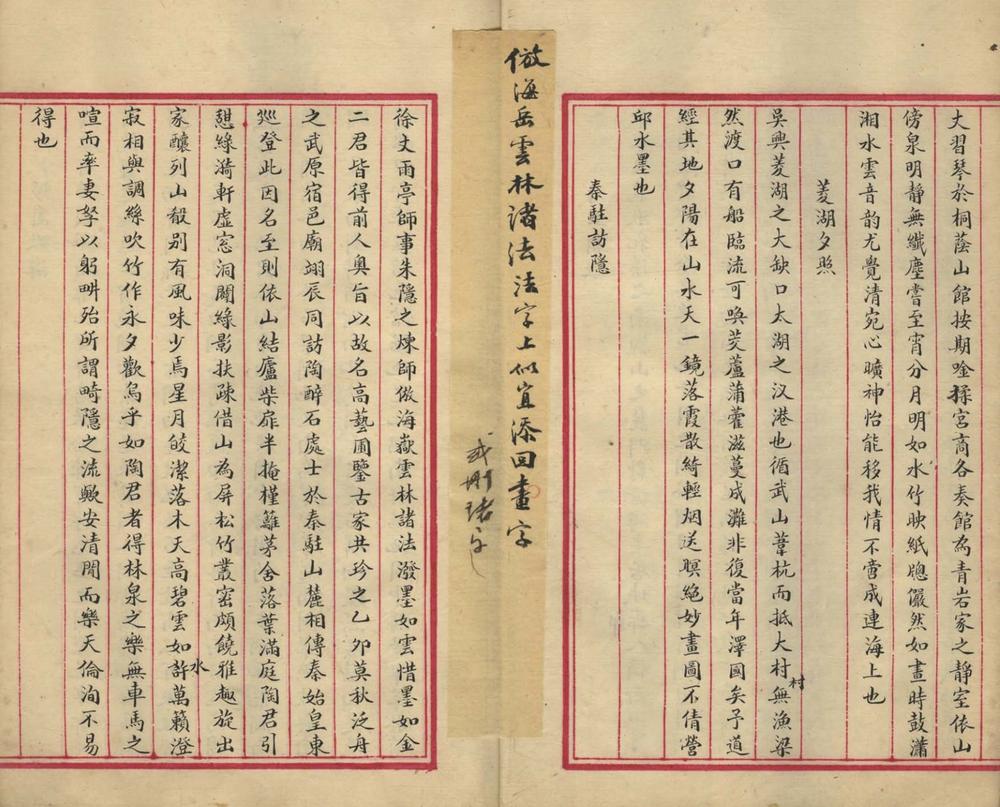 大習琴於桐蔭山館按期唫揉宮商各奏館為青岩家之靜室依山
傍泉明靜無纖塵嘗至宵分月明如水竹映紙牕儼然如畫時鼓瀟
湘水雲音韵尤覺清宛心曠神怡能移我情不啻成連海上也
菱湖夕照
吳興菱湖之大缺口太湖之汊港也循武山葦杭而抵大村無漁梁
村
然渡口有船臨流可喚茭蘆蒲藋滋蔓成灘非復當年澤國矣予道
經其地夕陽在山水天一鏡落霞散綺輕烟送暝絕妙畫圖不倩營
邱水墨也
秦駐訪隱
倣海岳雲林諸法法字上似宜添回畫字
或刪諸字
徐丈雨亭師事朱隱之煉師倣海嶽雲林諸法潑墨如雲惜墨如金
二君皆得前人奧旨以故名高藝圃鑒古家共珍之乙卯莫秋泛舟
之武原宿邑廟翊辰同訪陶醉石處士於秦駐山麓相傳秦始皇東
廵登此因名至則依山結廬柴扉半掩槿籬茅舍落葉滿庭陶君引
憇綠漪軒虛窓洞闢綠影扶疎借山為屏松竹叢密頗饒雅趣旋出
家釀列山殽別有風味少焉星月皎潔落木天高碧雲如許萬籟澄
水
寂相與調絲吹竹作永夕歡烏乎如陶君者得林泉之樂無車馬之
喧而率妻孥以躬畊殆所謂畸隱之流歟安清閒而樂天倫洵不易
得也